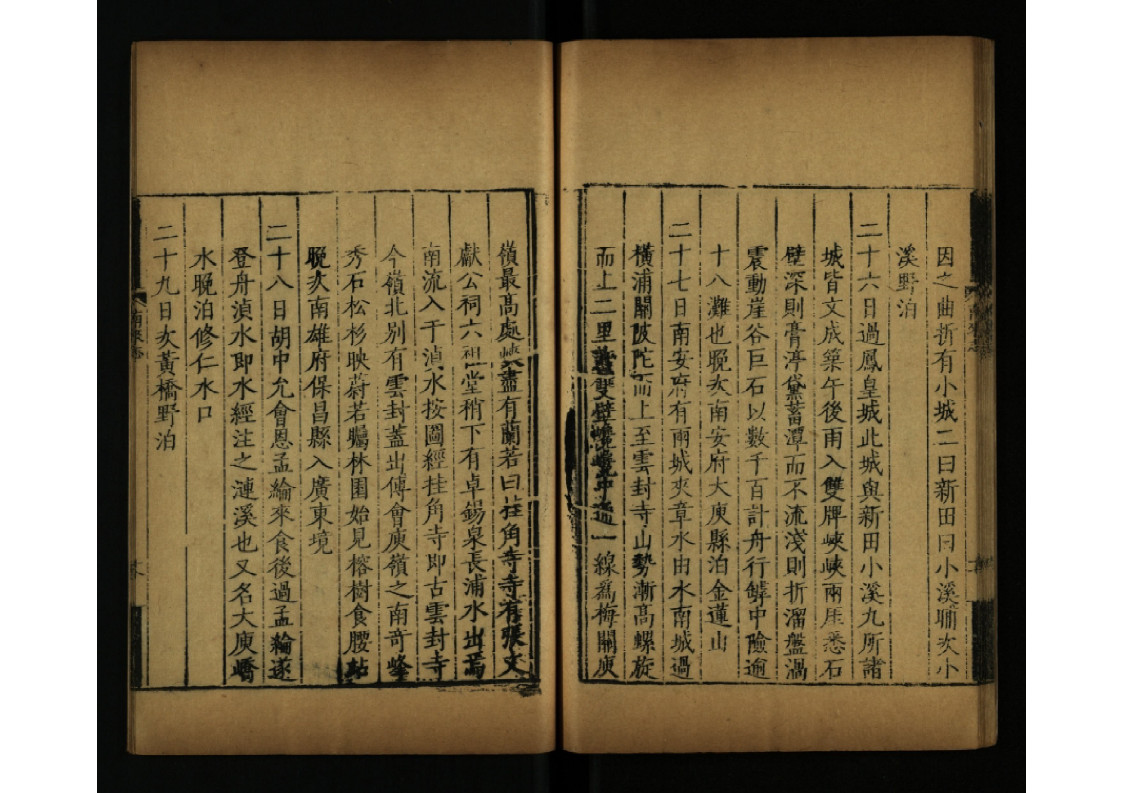 因之曲折有小城二曰新田曰小溪晡次小
溪野泊
二十六日過鳳皇城此城與新田小溪九所諸
城皆文成築午後雨入雙牌峽峽兩厓悉石
壁深則膏渟黛蓄潭而不流淺則折溜盤渦
震動崖谷巨石以數千百計舟行罅中險逾
十八灘也晚次南安府大庾縣泊金蓮山
二十七日南安府有兩城夾章水由水南城過
橫浦關陂陀而上至雲封寺山勢漸高螺旋
而上二里雙壁巉巉中通一線爲梅關庾
嶺最高處峽盡有蘭若曰挂角寺寺有張文
獻公祠六祖堂稍下有卓錫泉長浦水出焉
南流入于湞水按圖經挂角寺即古雲封寺
今嶺北別有雲封蓋出傅會庾嶺之南奇峰
秀石松杉映蔚若驪林園始見榕樹食腰站
晚次南雄府保昌縣入廣東境
二十八日胡中允會恩孟綸來食後過孟綸遂
登舟湞水即水經注之漣溪也又名大庾嶠
水晚泊修仁水口
二十九日次黃橋野泊
南來志